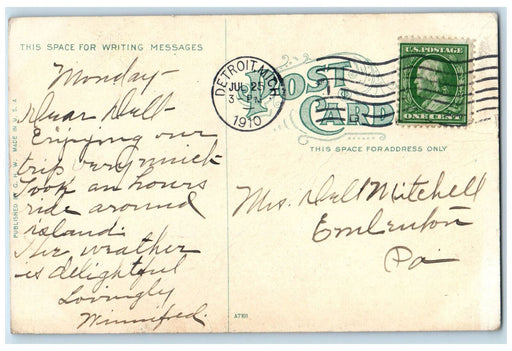 THIS SPACE FOR WRITING MESSAGES
Monday-
Dear Dell-
Enjoying our
trip very much
Took an hours
ride around
island.
The weather
is delightful
Lovingly
Winnifred.
PUBLISHED BY
MADE IN U.S.A.
DETROIT, MICH.
JUL 25
3 PM
1910
POST
CARD
1
U.S. POSTAGE
ONE CENT
THIS SPACE FOR ADDRESS ONLY
Mrs. Dell Mitchell
Emlenton
Pa
A7101